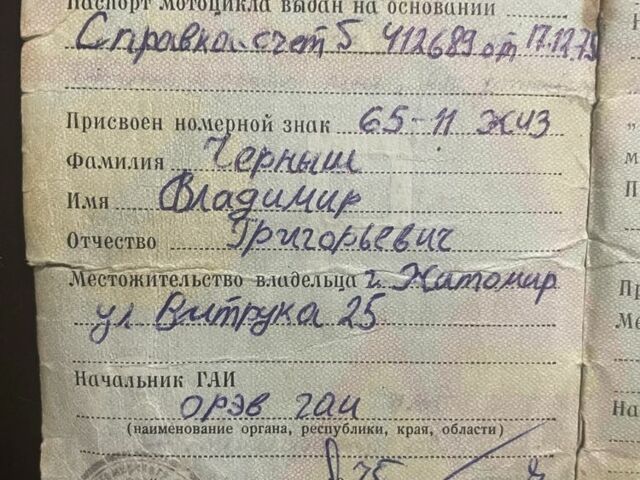 Паспорт мотоцикла выдан на основании
Справка-счет Б 412689 от 17.12.75
Присвоен номерной знак 65-11 ЖИЗ
Фамилия Черныш
Имя Владимир
Отчество Григорьевич
Местожительство владельца г. Житомир
ул Витрука 25
Начальник ГАИ
ОРЭВ ГАИ
(наименование органа, республики, края, области)